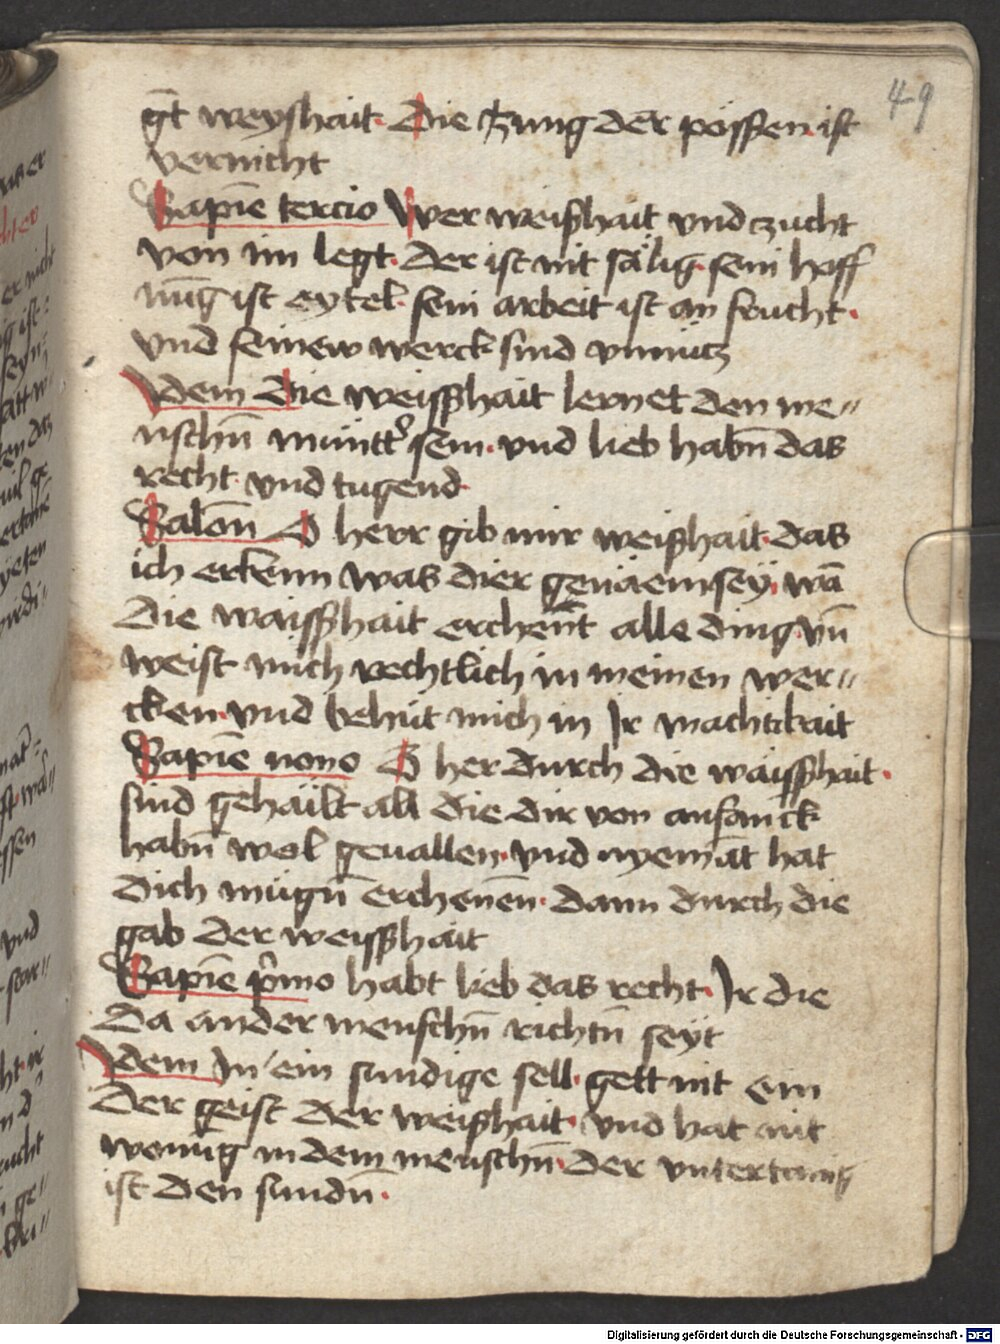 49
gt̄ weyshait. Die czung der pössen ist
vernicht
Sapīe tercio Wer weishait vnd zucht
von im legt. Der ist nit sälig. sein hoff
nūg ist eytel. sein arbeit ist an frucht.
vnd seinew werck sind vnnücz
Idem Die weisshait lernet den me〃
nschn̄ muntt̉ sein. vnd lieb habn̄ das
recht. vnd tugend.
Salon̄ O herr gib mir weishait. das
ich erkenn was dier genäem sey. wā
die waisshait erchen̄t alle ding. vn̄
weist mich rechtlich in meinen wer〃
cken. vnd behüt mich in Ir machtikait
Sapīe nono O her durch die waisshait.
sind gehäilt all die dir von anfanck
habn̄ wol geuallen. vnd nyemāt hat
dich mügn̄ erchenēn. dann durch die
gab der weisshait
Sapīe p̉mo habt lieb das recht. Ir die
da ander menschn̄ richtn̄ seyt
Idem In ein sundige sell. gett nit ein
der geist der weishait. vnd hat nit
wonūg in dem menschn̄. der vntertanig
ist den sundn̄.
Digitalisierung gefördert durch die Deutsche Forschungsgemeinschaft - DFG